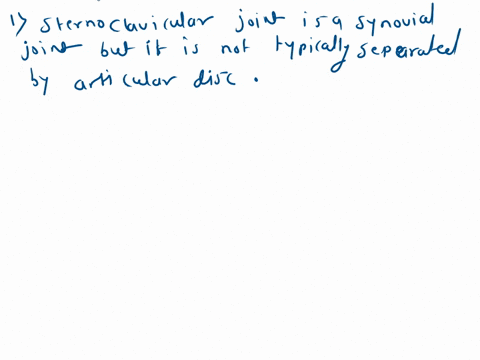 1) sternoclavicular joint is a synovial
joint but it is not typically separated
by articular disc .